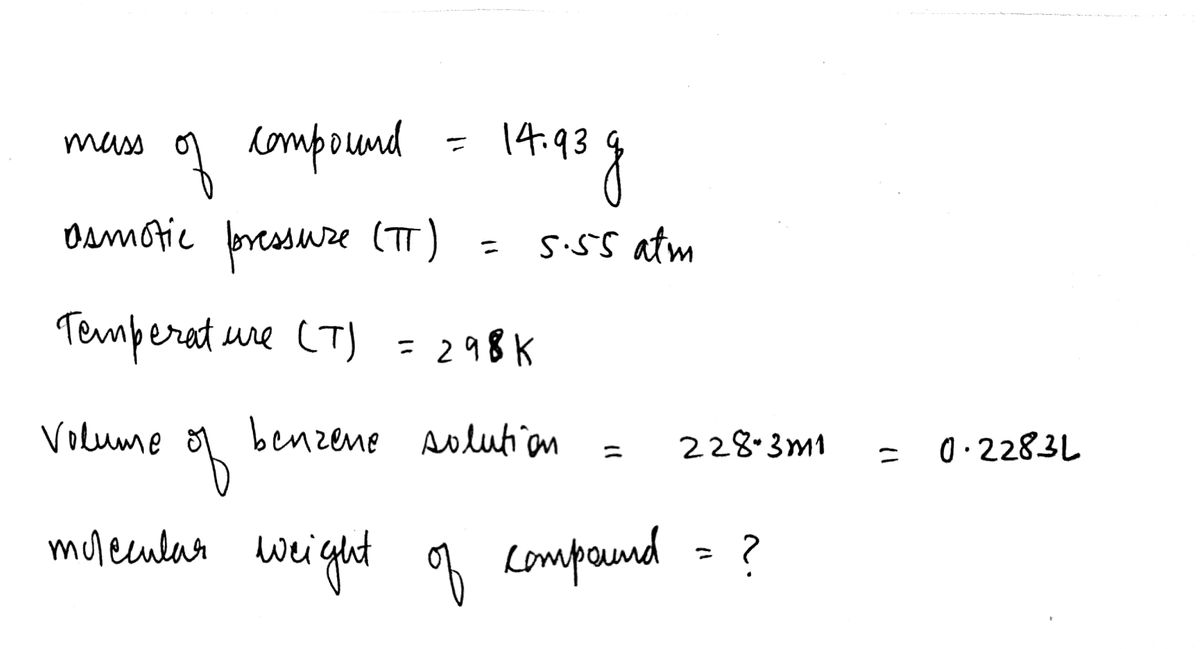 mass of compound = 14.93 g
osmotic pressure (π) = 5.55 atm
Temperature (T) = 298 K
Volume of benzene solution = 228.3ml = 0.2283L
molecular weight of compound = ?